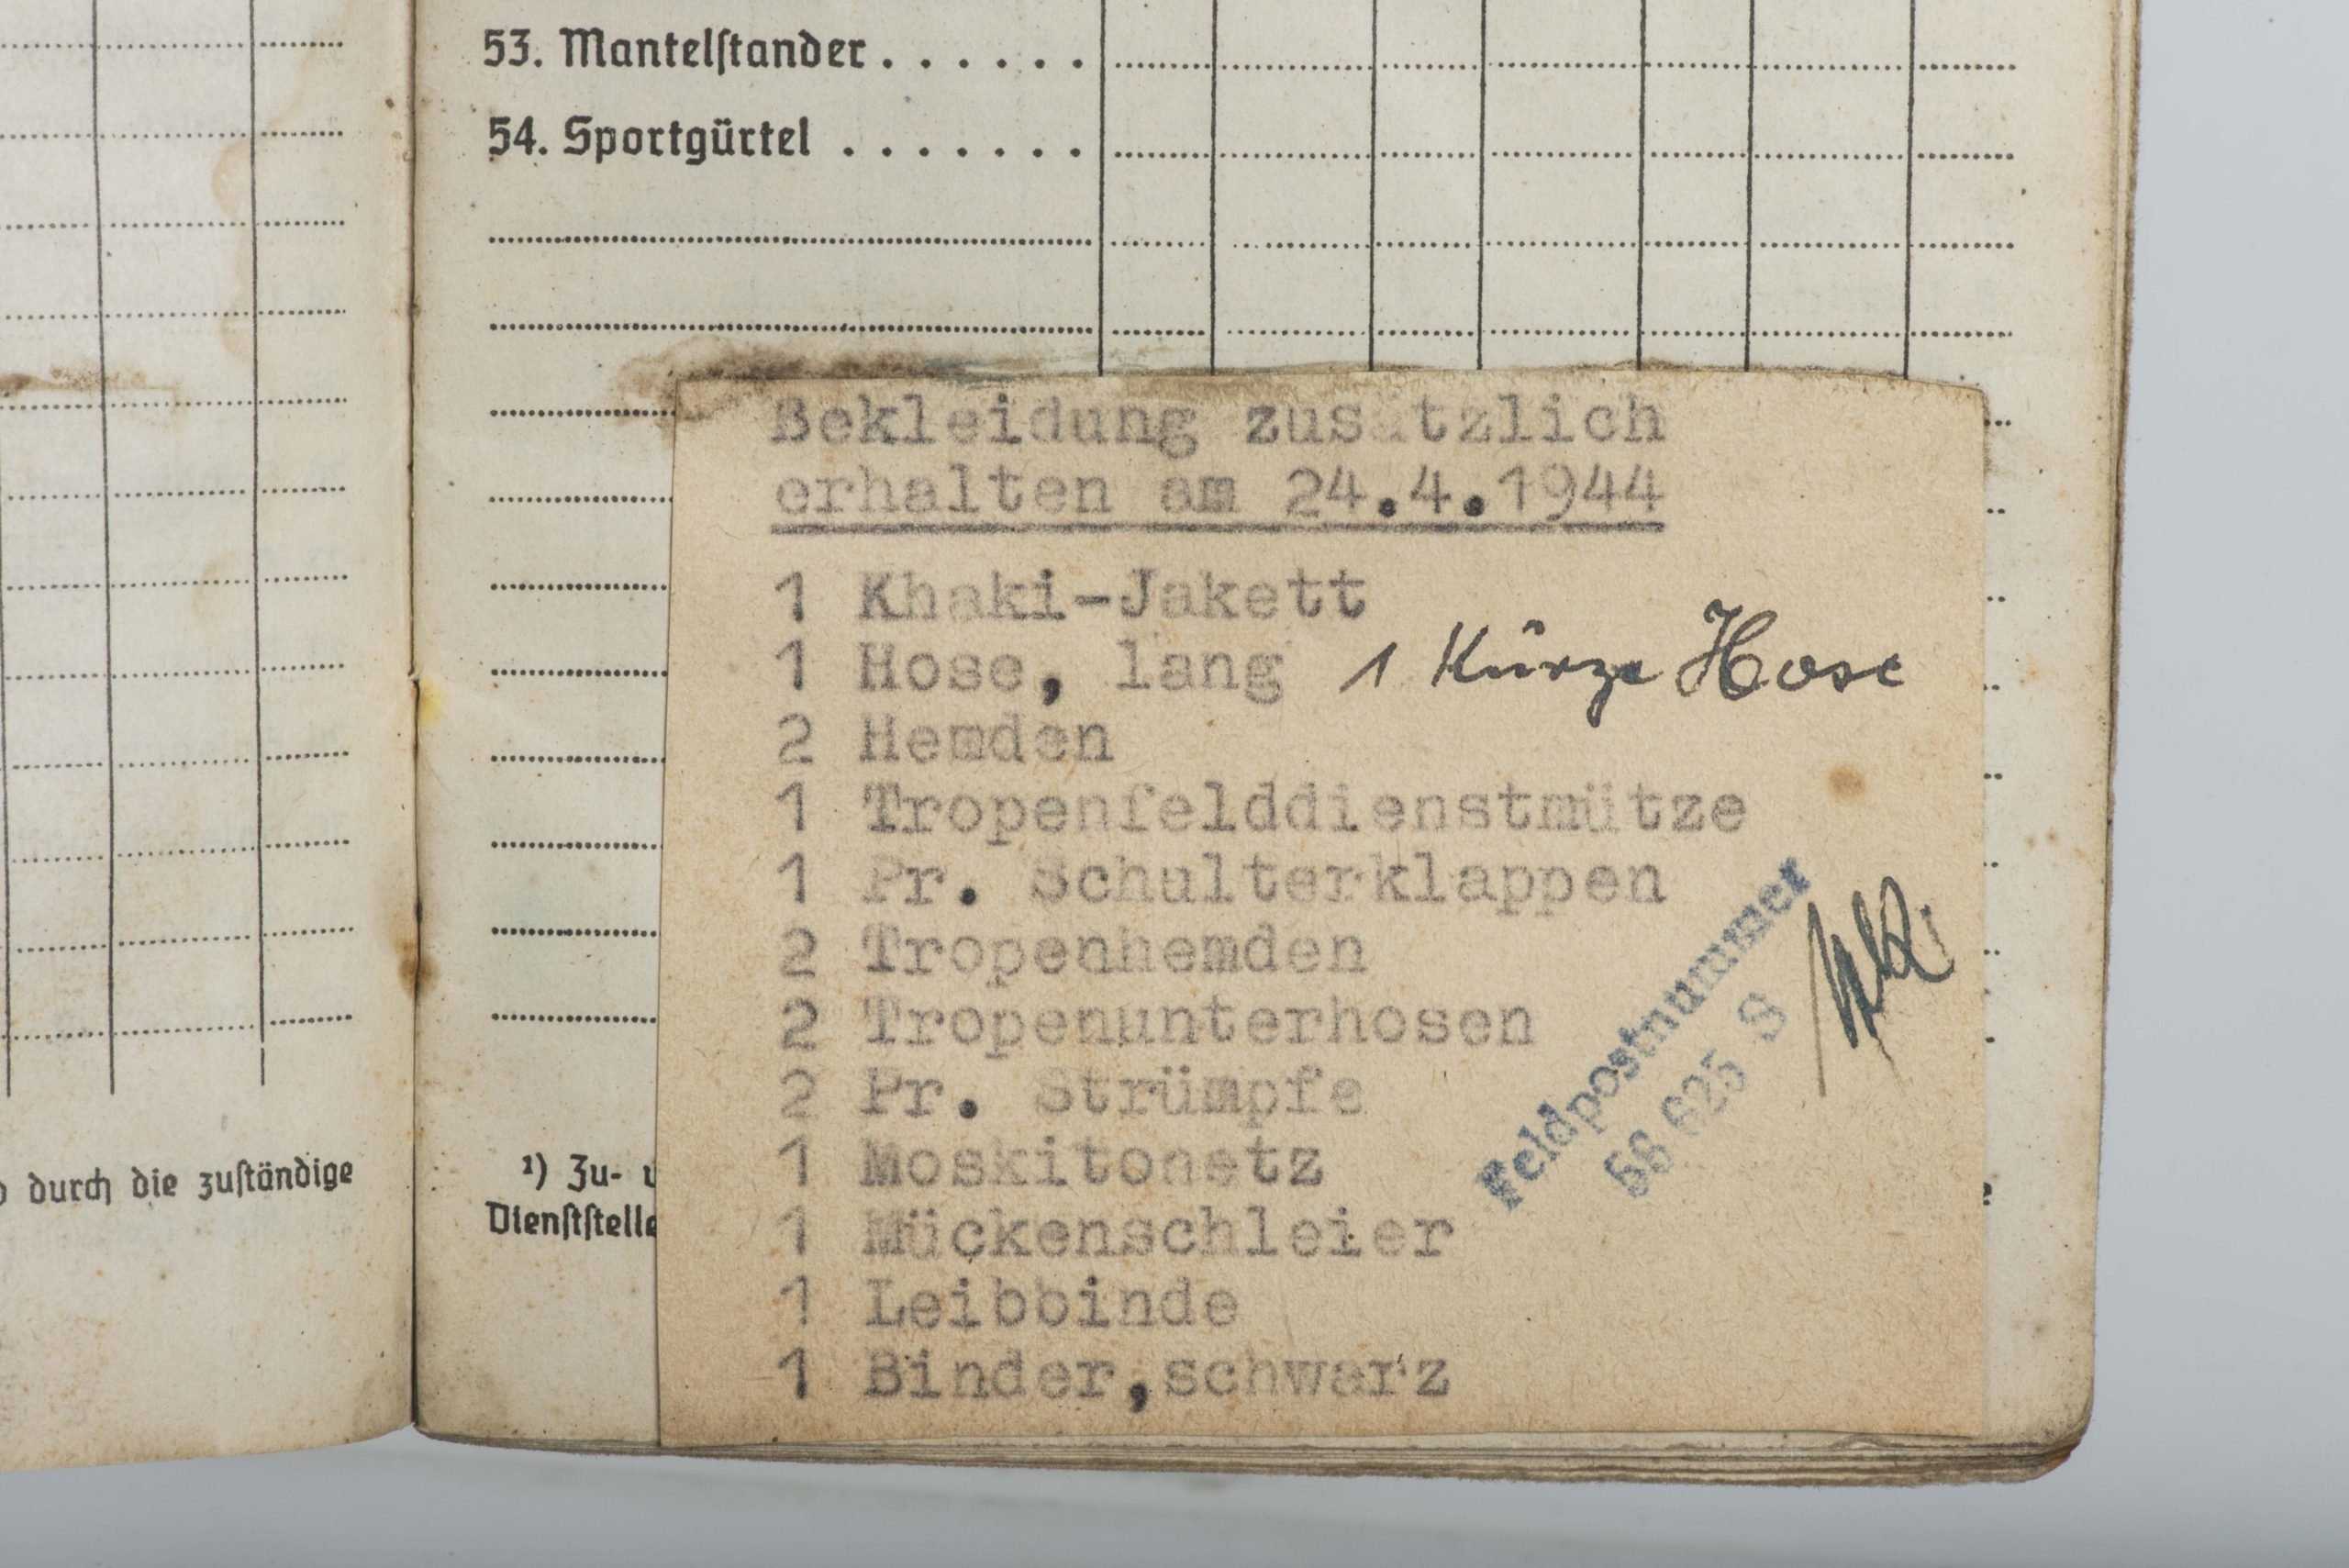 53. Mantelständer . . . . . .
54. Sportgürtel . . . . . . .
Bekleidung zusätzlich
erhalten am 24.4.1944
1 Khaki-Jakett
1 Hose, lang 1 Kurze Hose
2 Hemden
1 Tropenfelddienstmütze
1 Pr. Schulterklappen
2 Tropenhemden
2 Tropenunterhosen
2 Pr. Strümpfe
1 Moskitonetz
1 Mückenschleier
1 Leibbinde
1 Binder,schwarz
Feldpostnummer
56 625 S
durch die zuständige
¹) Zu-
Dienststelle